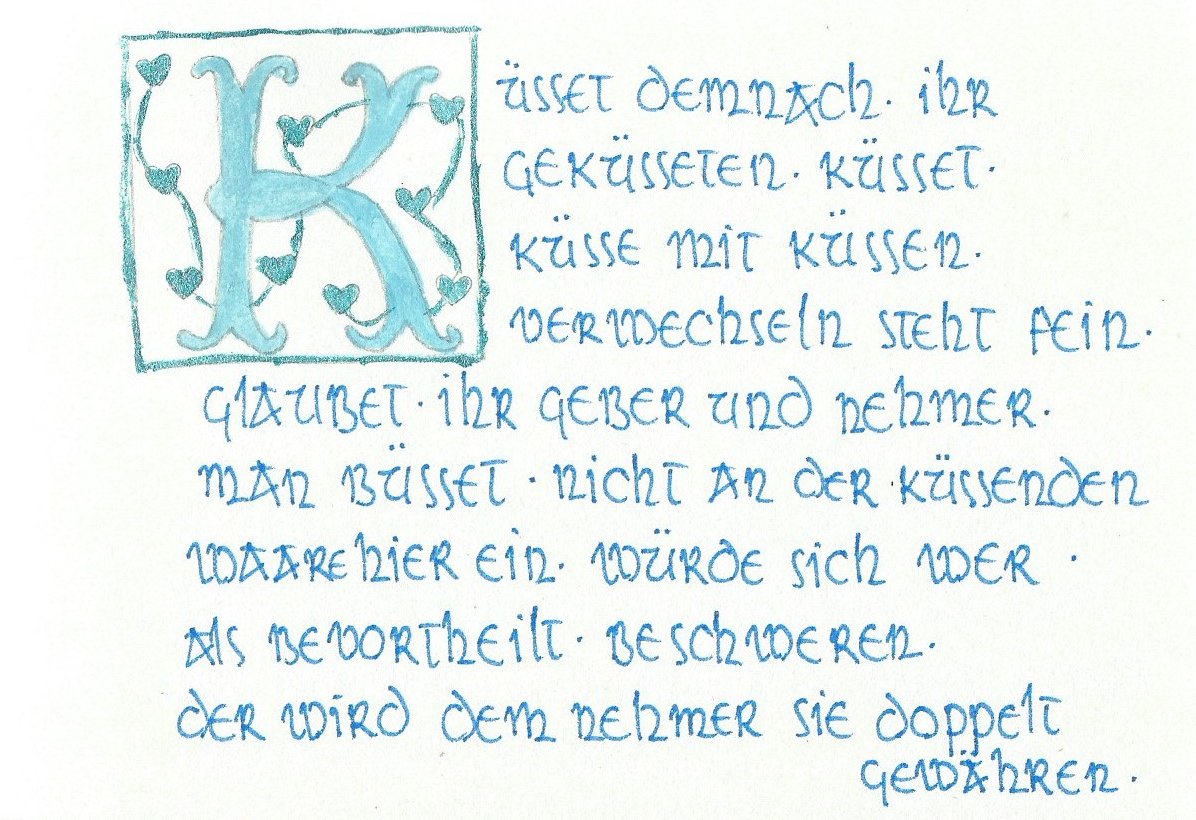 Küsset demnach. ihr
geküsseten. küsset.
küsse mit küssen.
verwechseln steht fein.
glaubet. ihr geber und nehmer.
man büsset. nicht an der küssenden
waare hier ein. würde sich wer.
als bevortheilt. beschweren.
der wird dem nehmer sie doppelt
gewähren.